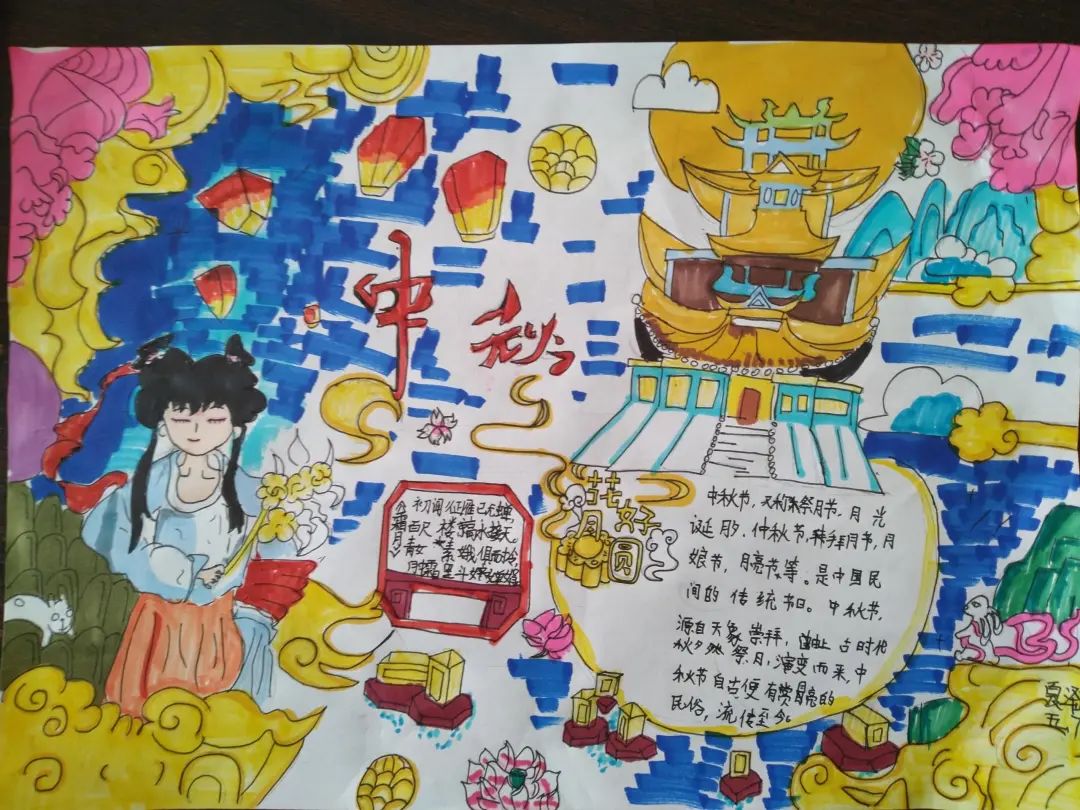 中秋
《霜月》
初闻征雁已无蝉
百尺楼水接天
青女素娥俱耐冷
月中霜里斗婵娟
花好
月圆
中秋节，又称祭月节，月光
诞、月夕、仲秋节，拜月节，月
娘节，月亮节等。是中国民
间的传统节日。中秋节，
源自天象崇拜，由上古时代
秋夕祭月，演变而来，中
秋节自古便有赏的
民俗，流传至今。
夏泽
五